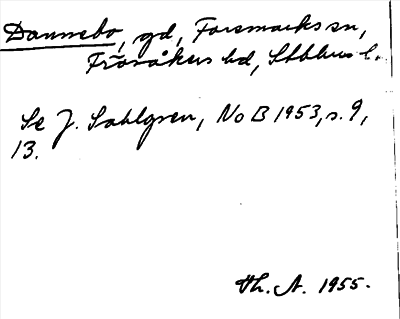 Dannebo, gd, Forsmarks sn,
Frösåkers hd, Sthlms l.
Se J. Sahlgren, NoB 1953, s. 9,
13.
Th. A. 1955.